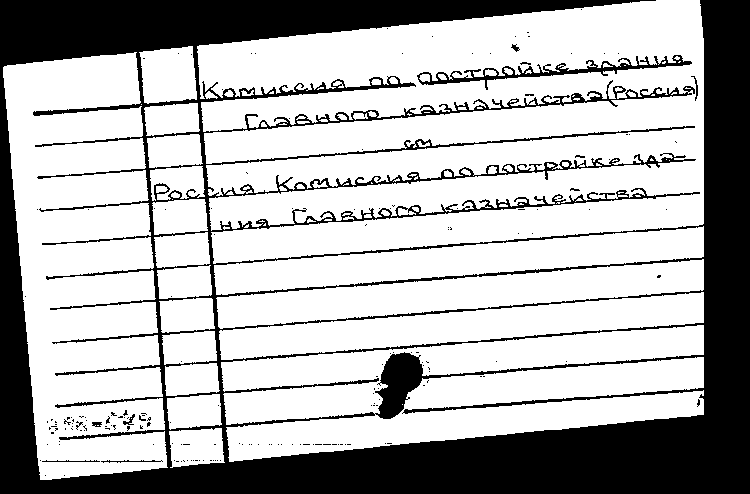 Комиссия по постройке здания
Главного казначейства (Россия)
см.
Россия. Комиссия по постройке зда-
ния Главного казначейства.